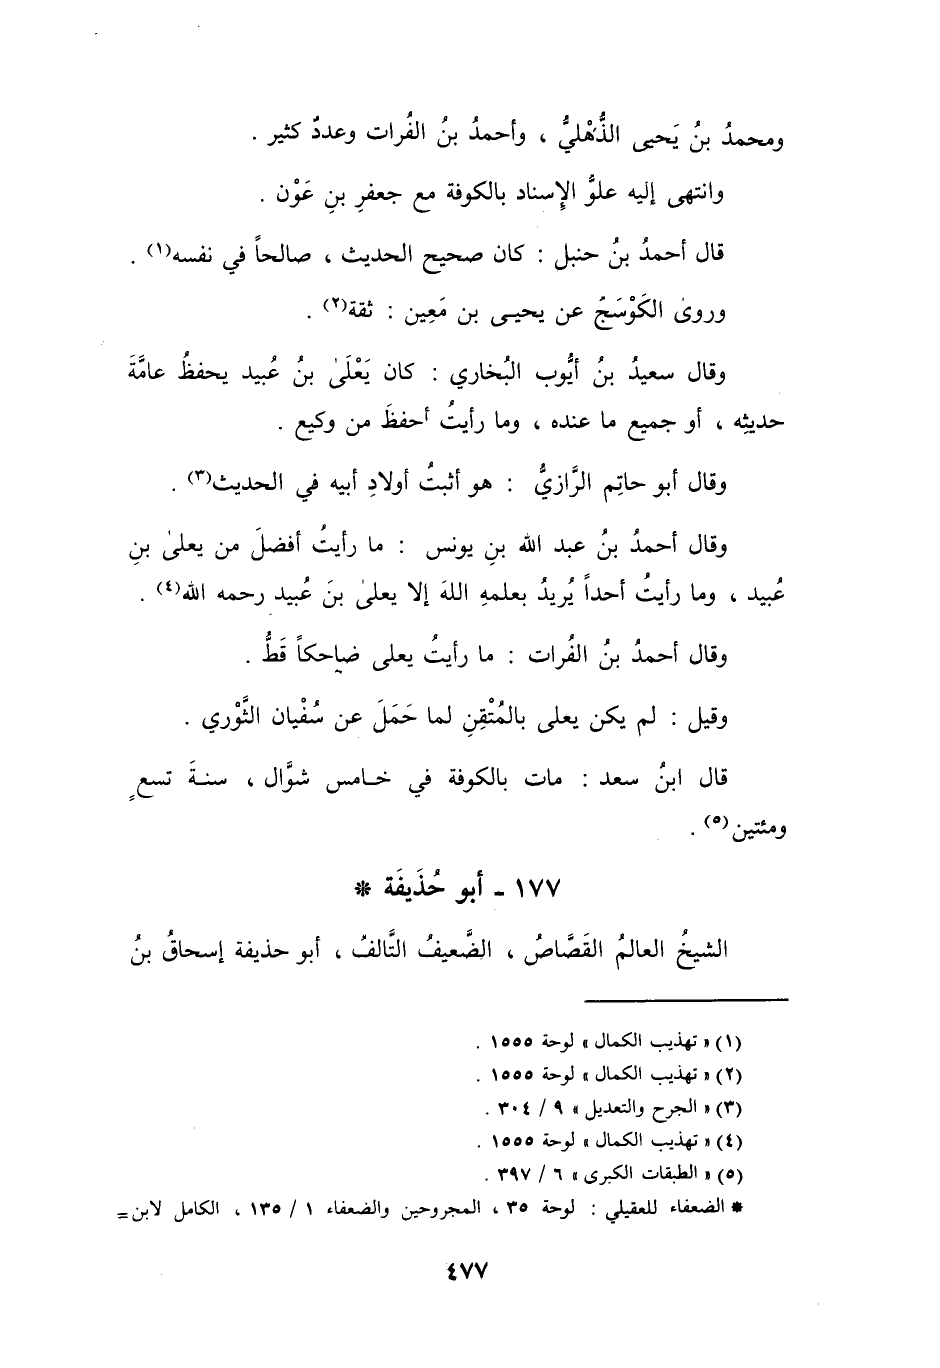 ومحمدُ بنُ يَحيى الذُّهْليُّ ، وأحمدُ بنُ الفُرات وعددٌ كثير .
وانتهى إليه علوُّ الإِسناد بالكوفة مع جعفرِ بنِ عَوْن .
قال أحمدُ بنُ حنبل : كان صحيح الحديث ، صالحاً في نفسه(١) .
وروىٰ الكَوْسَجُ عن يحيـى بن مَعِين : ثقة(٢) .
وقال سعيدُ بنُ أيُّوب البُخاري : كان يَعْلَىٰ بنُ عُبيد يحفظُ عامَّةَ
حديثِه ، أو جميع ما عنده ، وما رأيتُ أحفظَ من وكيع .
وقال أبو حاتِم الرَّازيُّ : هو أثبتُ أولادِ أبيه في الحديث(٣) .
وقال أحمدُ بنُ عبد الله بنِ يونس : ما رأيتُ أفضلَ من يعلىٰ بنِ
عُبيد ، وما رأيتُ أحداً يُريدُ بعلمهِ اللهَ إلا يعلىٰ بنَ عُبيد رحمه الله(٤) .
وقال أحمدُ بنُ الفُرات : ما رأيتُ يعلى ضاحكاً قَطُّ .
وقيل : لم يكن يعلى بالمُتْقِنِ لما حَمَلَ عن سُفْيان الثَّوْري .
قال ابنُ سعد : مات بالكوفة في خـامس شوَّال ، سنـةَ تسعٍ
ومئتين(٥) .
١٧٧ - أبو حُذَيفَة *
الشيخُ العالمُ القَصَّاصُ ، الضَّعيفُ التَّالفُ ، أبو حذيفة إسحاقُ بنُ
(١) « تهذيب الكمال » لوحة ١٥٥٥ .
(٢) « تهذيب الكمال » لوحة ١٥٥٥ .
(٣) « الجرح والتعديل » ٩ / ٣٠٤ .
(٤) « تهذيب الكمال » لوحة ١٥٥٥ .
(٥) « الطبقات الكبرى » ٦ / ٣٩٧ .
* الضعفاء للعقيلي : لوحة ٣٥ ، المجروحين والضعفاء ١ / ١٣٥ ، الكامل لابن =
٤٧٧